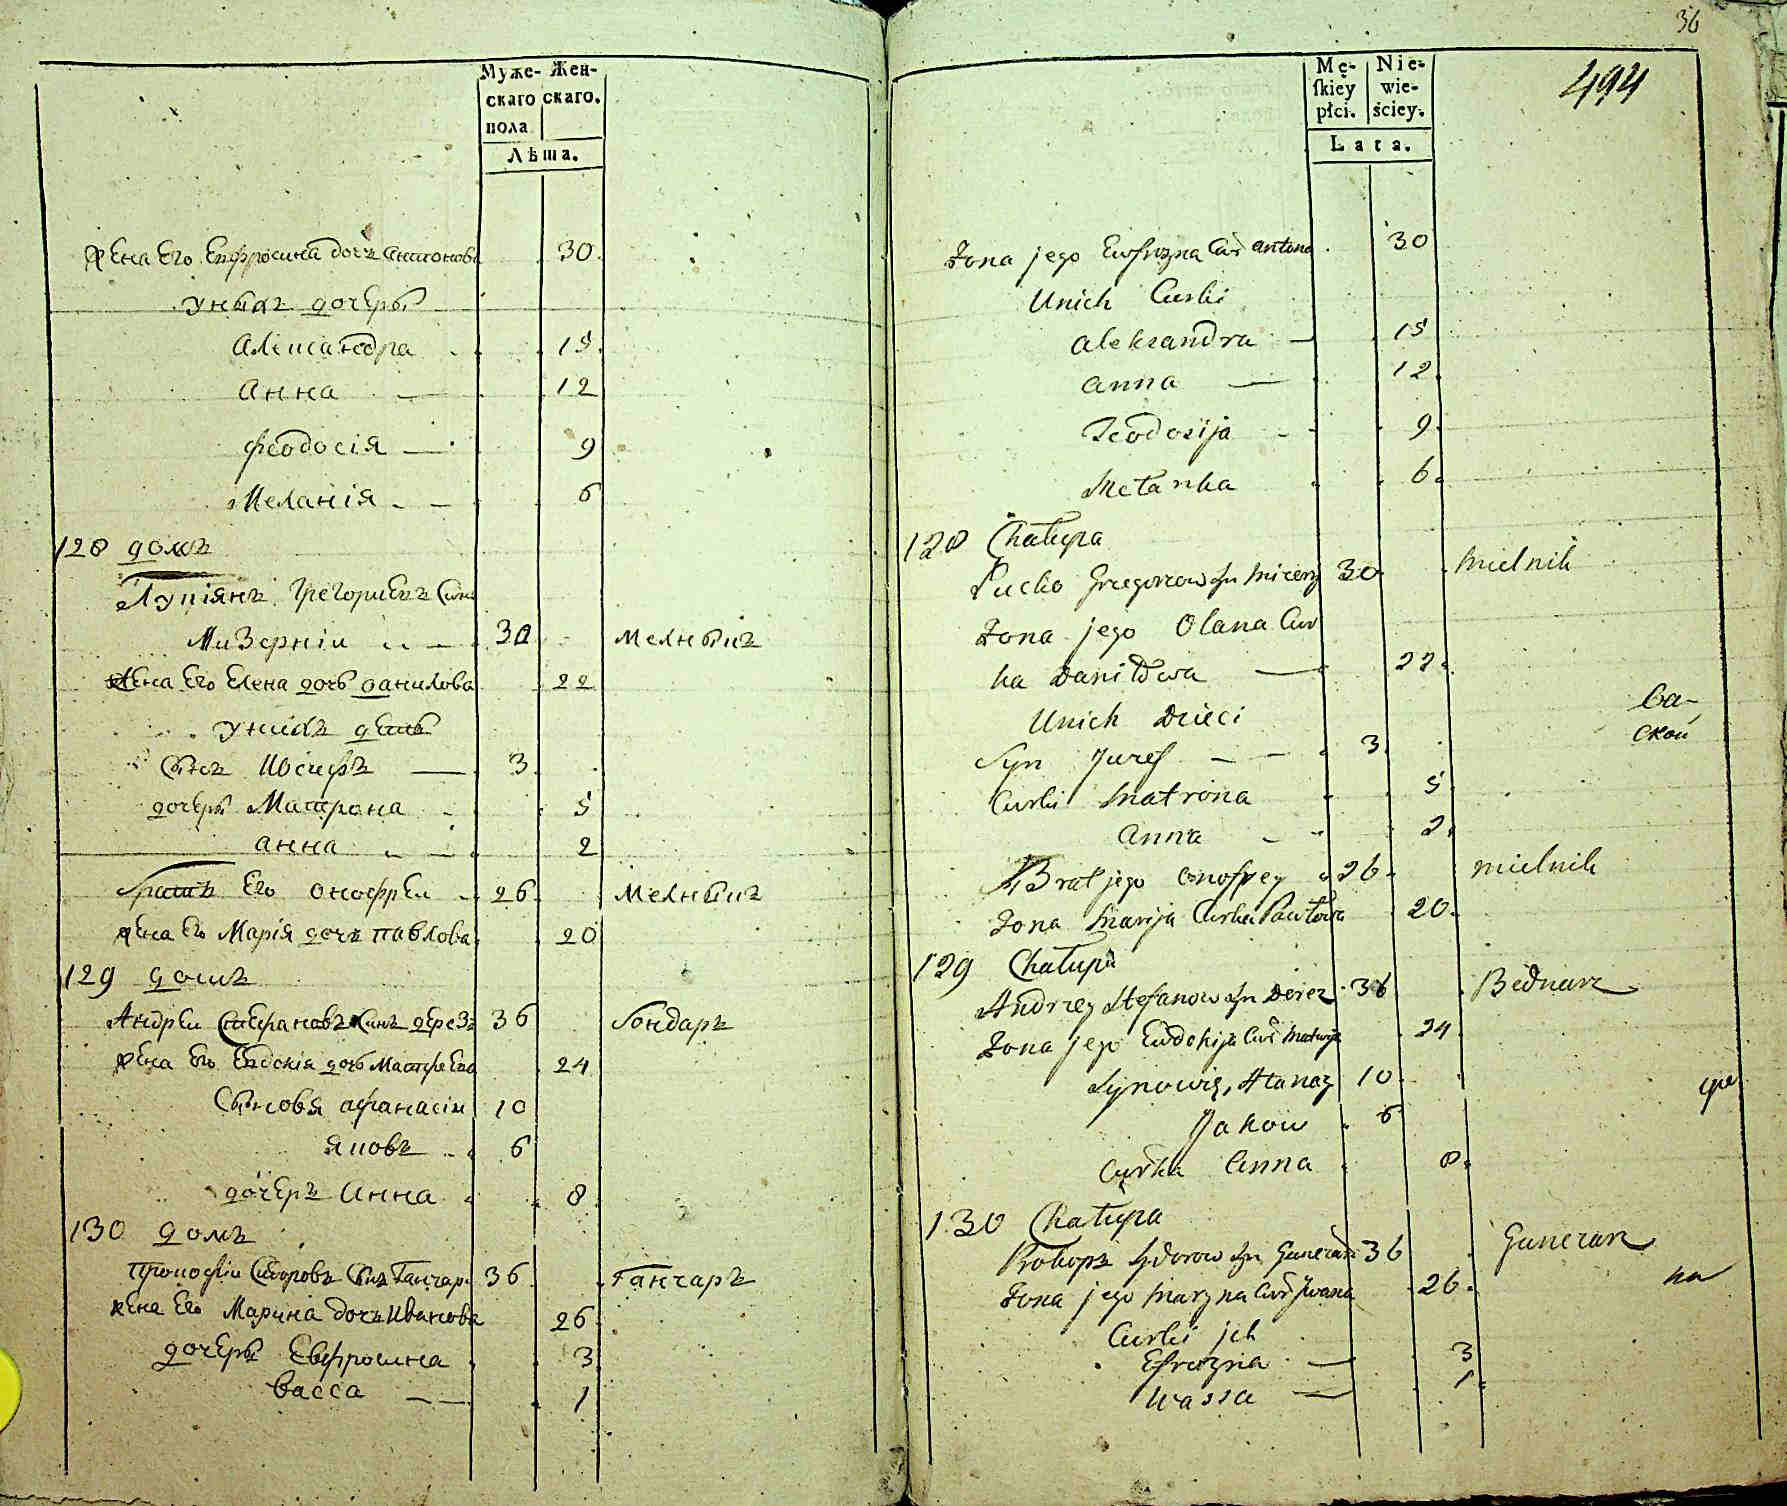 Муже- Жен-
скаго скаго.
пола
Лѣта.
жена Его Ефросина дочь Антонова 30
Унихъ дочеры
Александра 15
Анна 12
Феодосія 9
Меланія 6
128 домъ
Лукіянъ Грегориевъ Сынъ
Мизерніи 30 Мелныкъ
жена Его Елена дочь данилова 22
Унихъ дети
Сынъ Иосифъ 3
дочеры Матрона 5
анна 2
братъ Его Онофреи 26 Мелныкъ
жена Его Марія дочь павлова 20
129 домъ
Андреи Стефановъ Синъ дерезъ 36 бондаръ
жена Его Евдокія дочь Матфеева 24
Сыновя афанасіи 10
яковъ 6
дочеръ Анна 8
130 домъ
прокофіи Сидоровъ Сынъ Ганчар 36 ганчаръ
жена Его Марина дочь Иванова 26
дочеры Евфросина 3
васса 1
36
Mę- Nie-
skiey wie-
płci. ściey.
Lata.
494
Zona jego Eufrozyna Cur Antona 30
Unich Curki
Aleksandra 15
Anna 12
Teodosija 9
Mełanka 6
128 Chałupa
Łucko Grzegorzow Syn Mizerny 30 Mielnik
Zona jego Olana Cur
ka Daniłowa 22
Unich Dzieci
Syn Jozef 3
Curki Matrona 5
Anna 2
Brat jego Onofrey 26 mielnik
Zona Marija Curka Pawłowa 20
ва-
ской
129 Chałupa
Andrzey Stefanow Syn Derez 36 Bednarz
Zona jego Eudokija Cur Matwija 24
Synowie, Atanazy 10
Jakow 6
Curka Anna 8
130 Chałupa
Prokop Sydorow Syn Ganczar 36 Ganczarz
Zona jego Maryna Cur Jwana 26
на
Curki jch
Efrozyna 3
Wassa 1